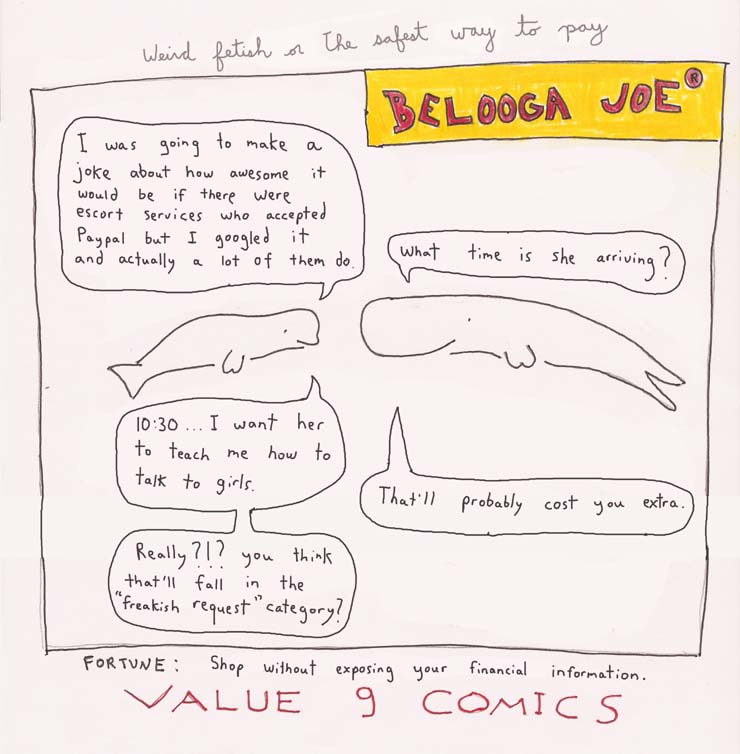 Weird fetish or The safest way to pay
BELOOGA JOE®
I was going to make a
joke about how awesome it
would be if there were
escort services who accepted
Paypal but I googled it
and actually a lot of them do.
What time is she arriving?
10:30 ... I want her
to teach me how to
talk to girls.
That'll probably cost you extra.
Really?!? you think
that'll fall in the
"freakish request" category?
FORTUNE: Shop without exposing your financial information.
VALUE 9 COMICS